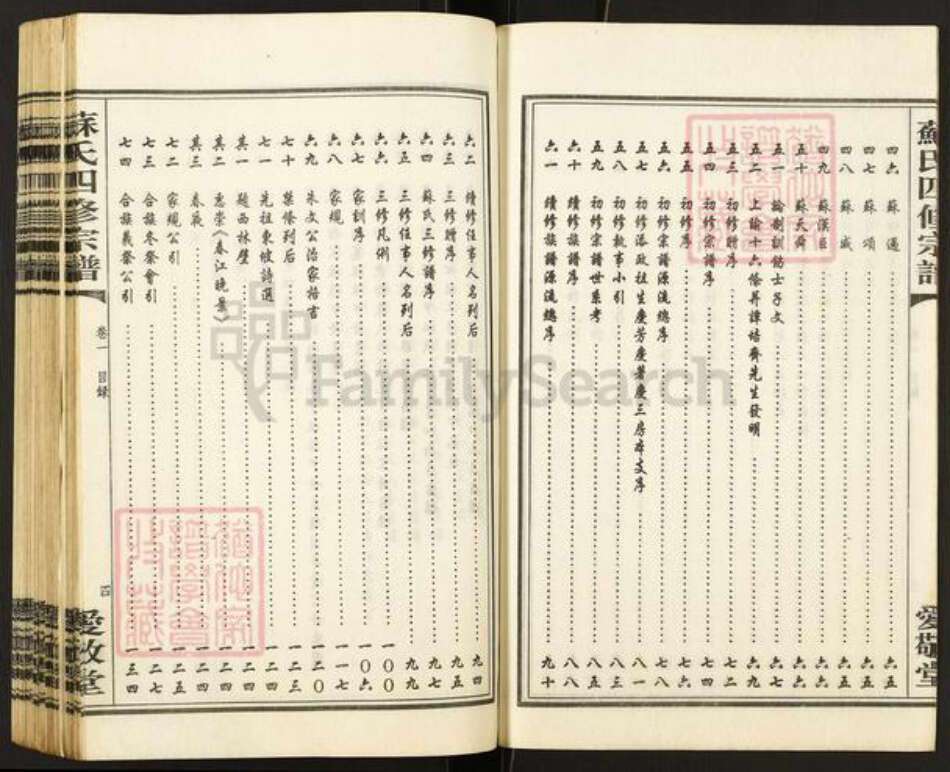 蘇氏四修宗譜
愛敬堂
四六 蘇邁 六五
四七 蘇頌 六五
四八 蘇威 六五
四九 蘇漢臣 六五
五十 蘇天爵 六六
五一 諭制訓飭士子文
五二 上諭十六條并譚培齊先生發明 六九
五三 初修贈序 七二
五四 初修宗譜序
五五 初修序 七六
五六 初修宗譜源流總序 七八
五七 初修添政祖生慶芳慶著慶三房本支序 八一
五八 初修執事小引
五九 初制宗譜世系考 八五
六十 續修族譜序 八八
六一 續修族譜源流總序 九十
六二 續修任事人名列后 九四
六三 三修贈序 九五
六四 蘇氏三修譜序 九七
六五 三修任事人名列后 九九
六六 三修凡例 一〇〇
六七 家訓序 一〇六
六八 家規 一一七
六九 朱文公治家格言 一二〇
七十 禁條列后 一二三
七一 先祖東坡詩選 一二四
其一 題西林壁 一二四
其二 惠崇《春江晚景》 一二四
其三 春夜 一二五
七二 家規公引 一二六
七三 合族冬祭會引 一二七
七四 合族義祭公引 一三四
蘇氏四修宗譜
卷一 目録
四
愛敬堂
FamilySearch